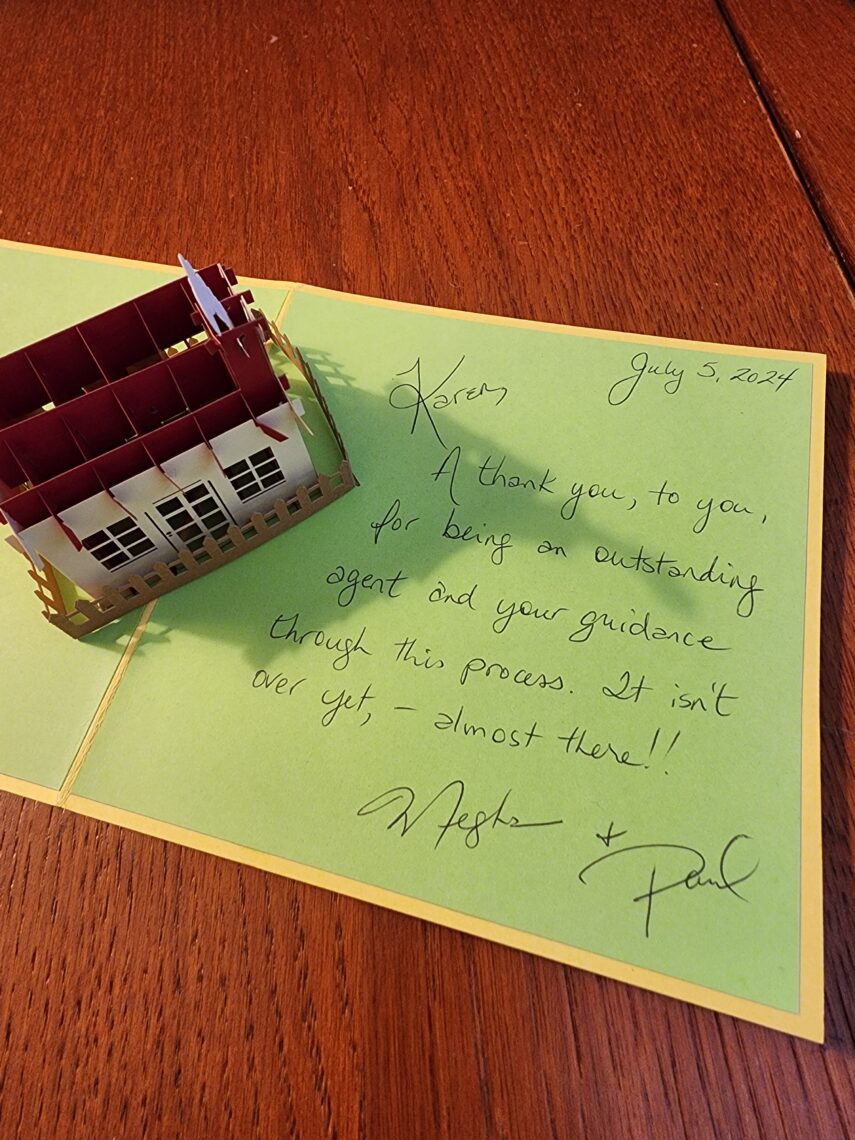 July 5, 2024
Karen
A thank you, to you,
for being an outstanding
agent and your guidance
through this process. It isn't
over yet, – almost there!!
+ Paul